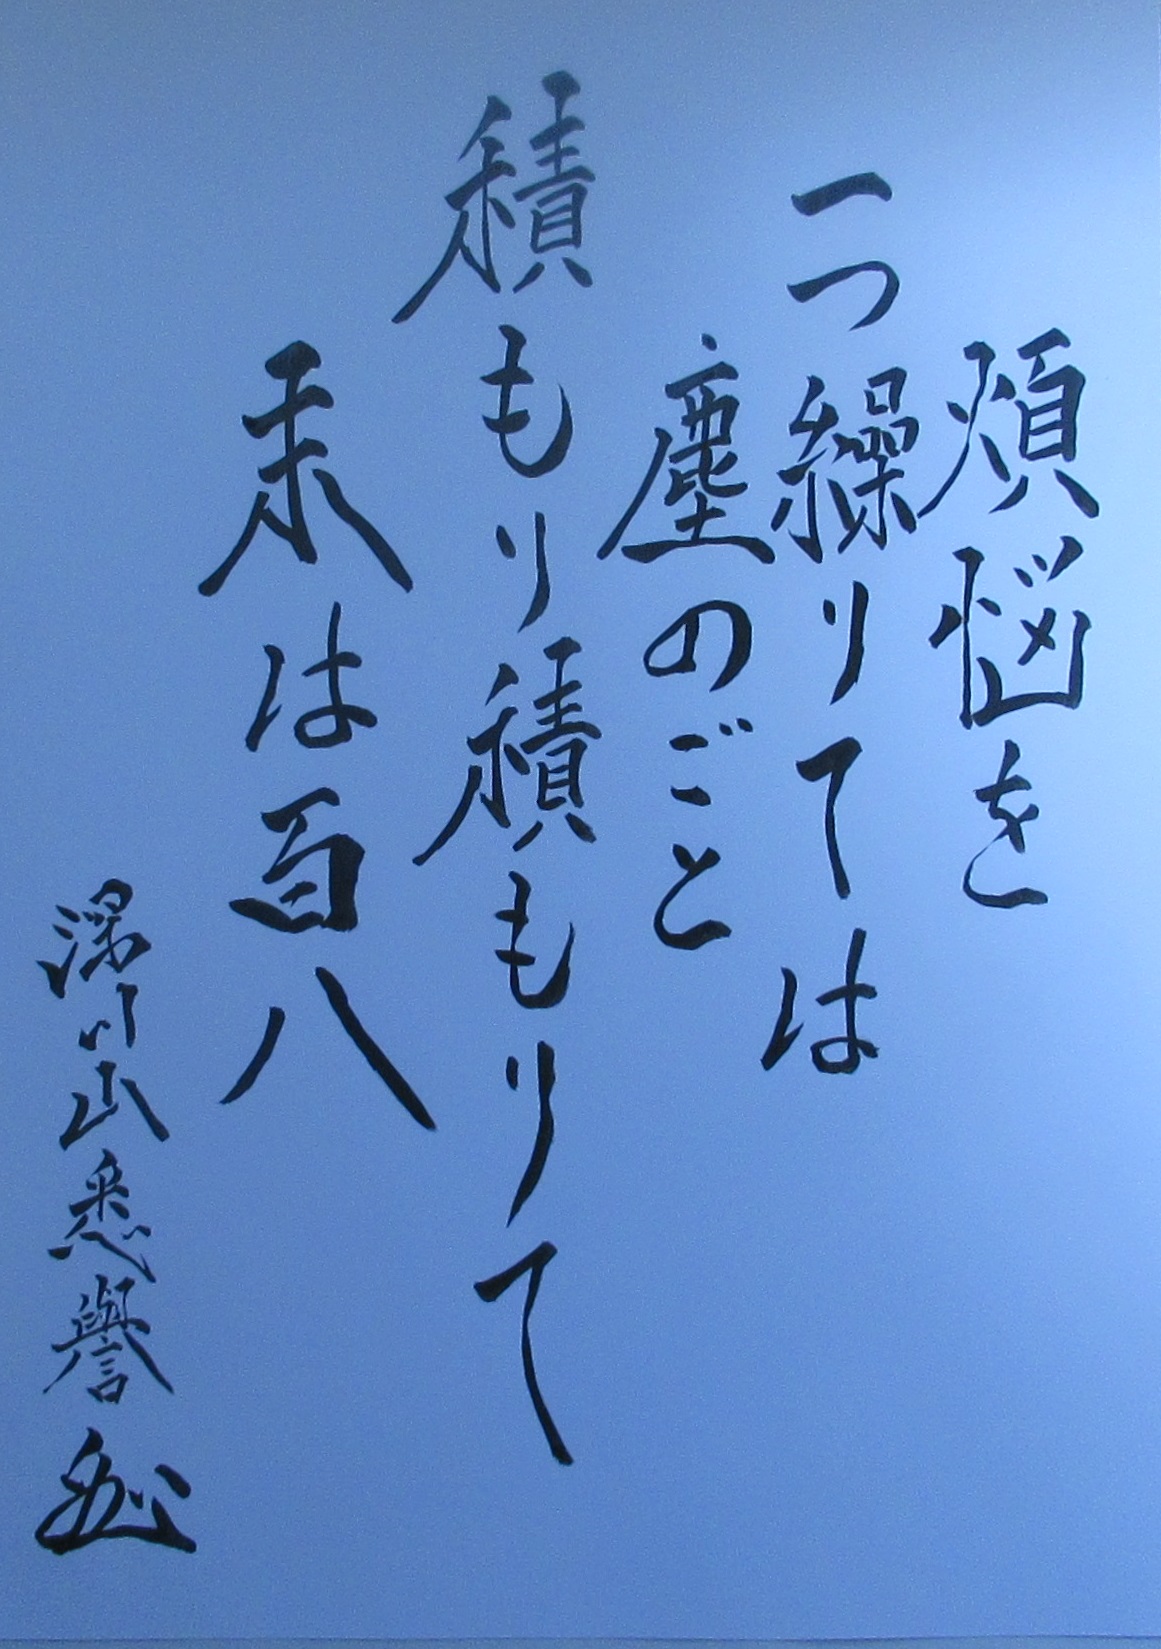 煩悩を
一つ繰りては
塵のごと
積もり積もりて
末は百八
深川山悉譽